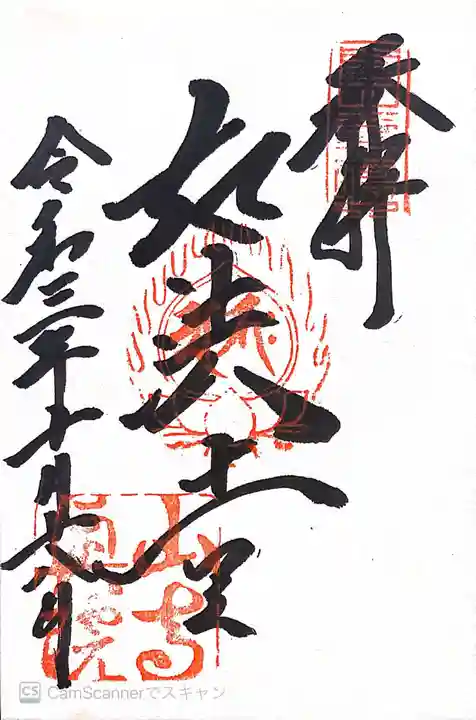 奉拝
如法堂
令和三年十月
山寺
CS CamScannerでスキャン